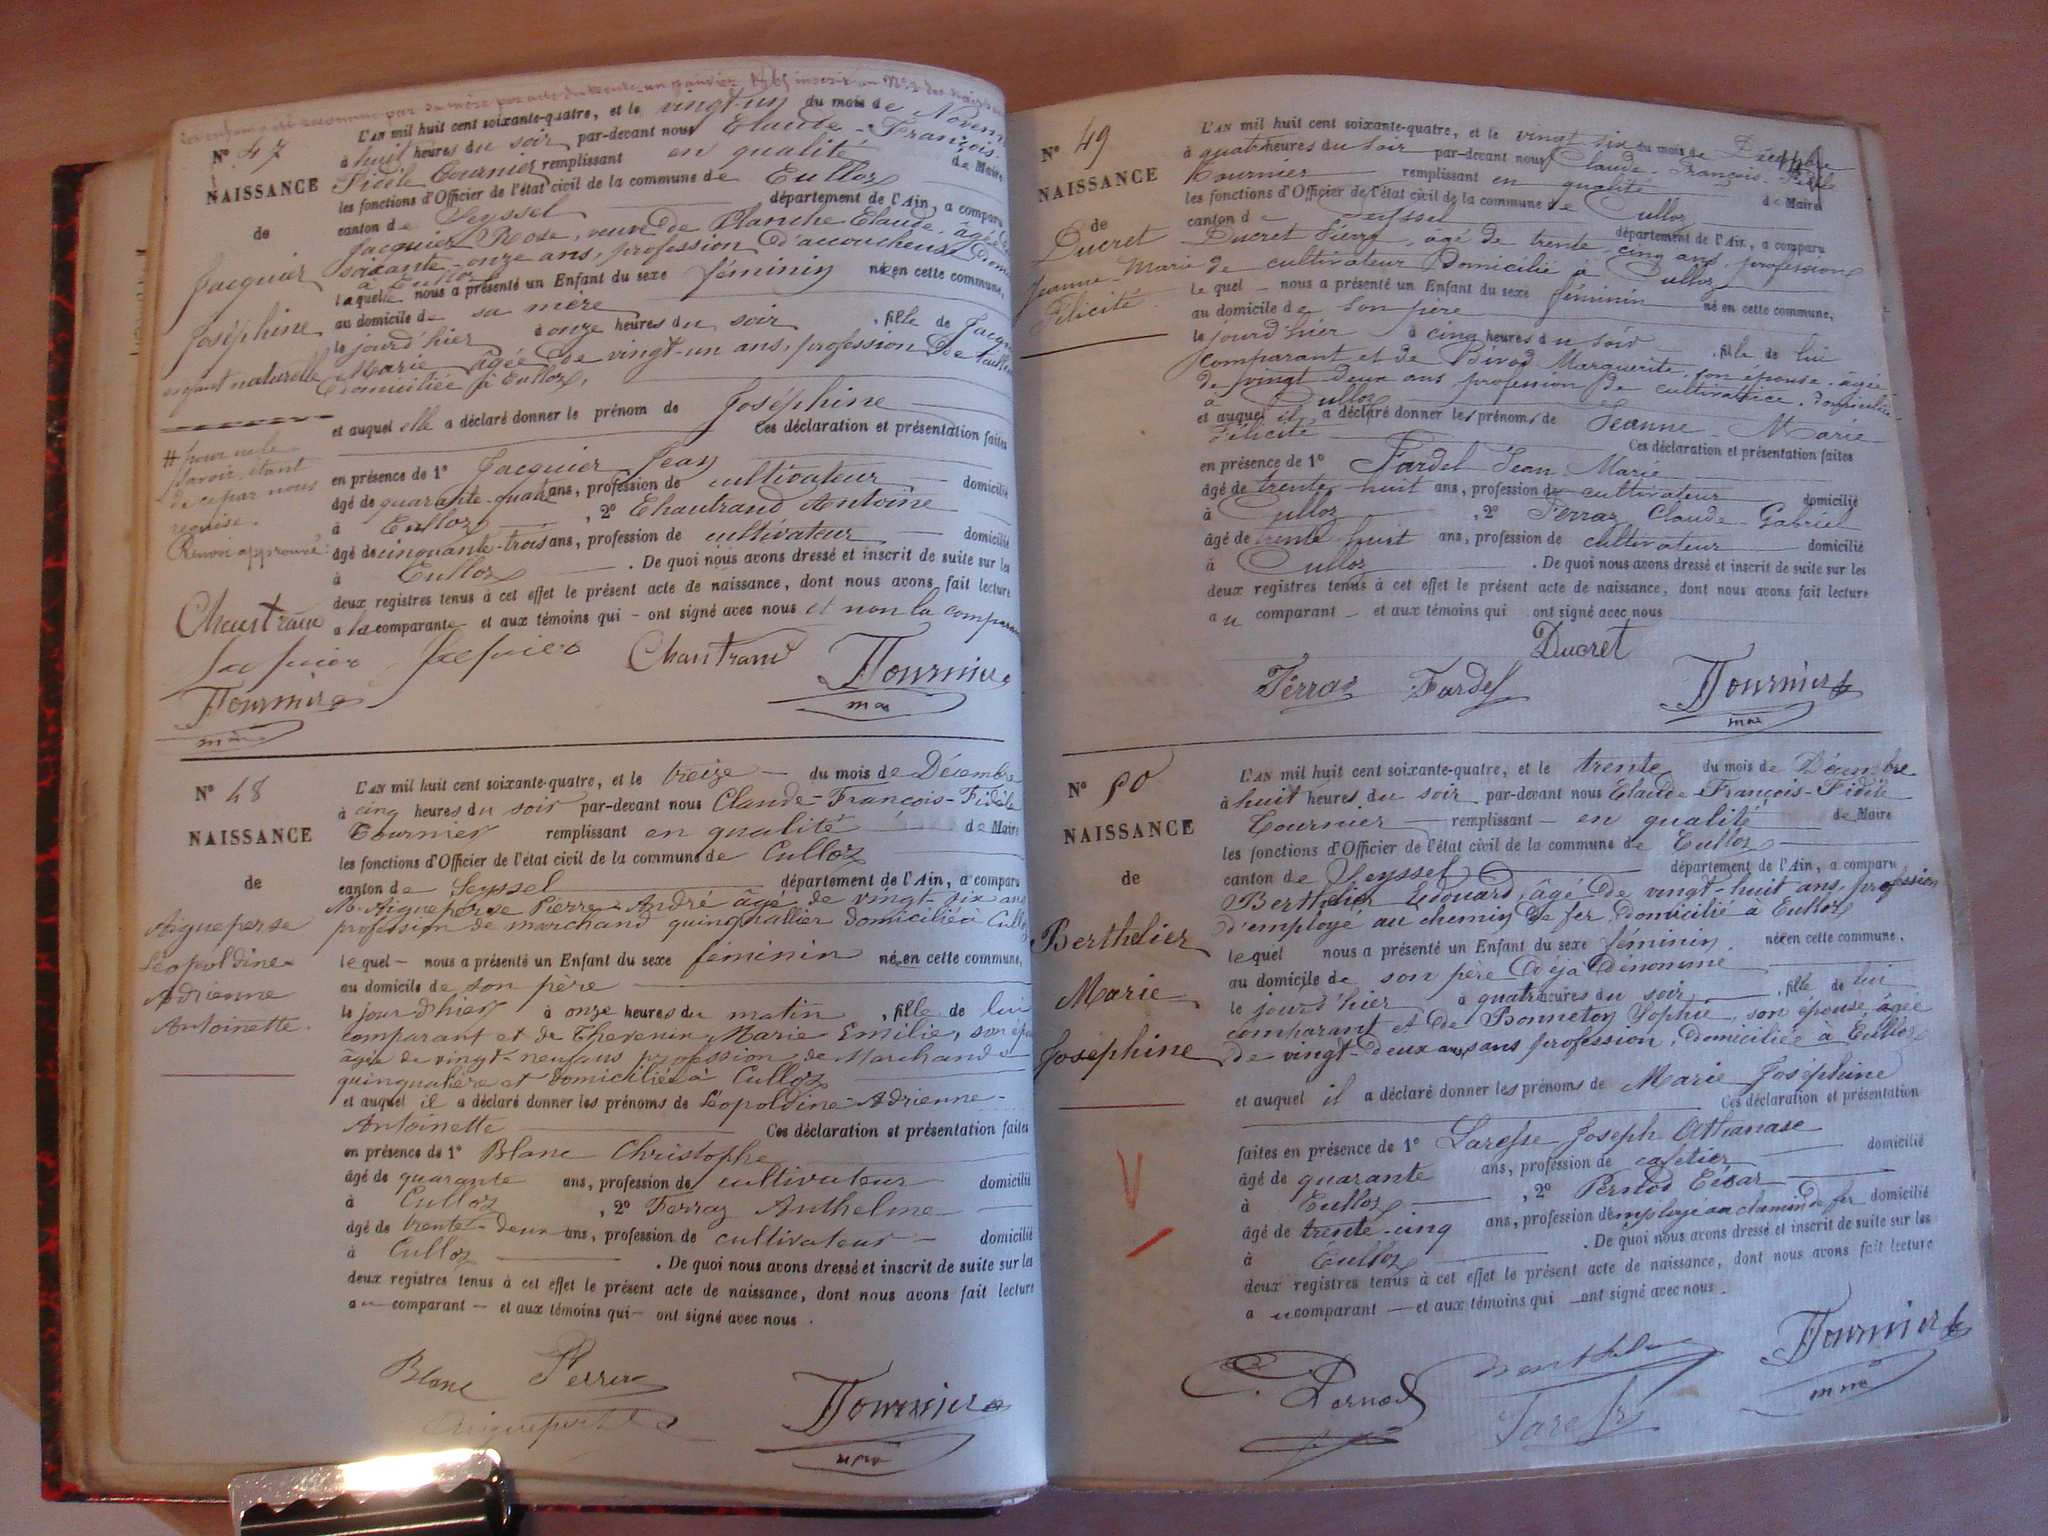 par sa mère par acte du trente-un janvier 1865 inscrit au N°
N° 47
NAISSANCE
de
Jacquier
Joséphine
enfant naturelle
# pour ne le
savoir, étant
de ce par nous
requise.
Renvoi approuvé
Chautrand
Jacquier
Tournier
maire
L'AN mil huit cent soixante-quatre, et le vingt-un du mois de Novem
à huit heures du soir par-devant nous Claude-François-
Fidèle Tournier remplissant en qualité de Maire
les fonctions d'Officier de l'état civil de la commune de Culloz
canton de Seyssel département de l'Ain, a comparu
Jacquier Rose, veuve de Planche Claude, âgée de
soixante-onze ans, profession d'accoucheuse, domi
à Culloz
laquelle nous a présenté un Enfant du sexe féminin né en cette commune,
au domicile de sa mère
le jourd'hier à onze heures du soir, fille de Jacqu
Marie âgée de vingt-un ans, profession de
domiciliée à Culloz,
et auquel elle a déclaré donner le prénom de Joséphine
Ces déclaration et présentation faites
en présence de 1° Jacquier Jean
âgé de quarante-quatre ans, profession de cultivateur domicilié
à Culloz, 2° Chautrand Antoine
âgé de cinquante-trois ans, profession de cultivateur domicilié
à Culloz. De quoi nous avons dressé et inscrit de suite sur les
deux registres tenus à cet effet le présent acte de naissance, dont nous avons fait lecture
a la comparante et aux témoins qui ont signé avec nous et non la comparan
Jacquier Chautrand Tournier
maire
N° 48
NAISSANCE
de
Aigueperse
Léopoldine
Adrienne
Antoinette.
L'AN mil huit cent soixante-quatre, et le treize du mois de Décembre
à cinq heures du soir par-devant nous Claude-François-Fidèle
Tournier remplissant en qualité de Maire
les fonctions d'Officier de l'état civil de la commune de Culloz
canton de Seyssel département de l'Ain, a comparu
M. Aigueperse Pierre-André âgé de vingt-six ans
profession de marchand quinquallier domicilié à Culloz
le quel nous a présenté un Enfant du sexe féminin né en cette commune,
au domicile de son père
le jour d'hier à onze heures du matin, fille de lui
comparant et de Thevenin Marie Emilie, son épou
âgée de vingt-neuf ans profession de Marchande
quinqualière et domiciliée à Culloz
et auquel il a déclaré donner les prénoms de Léopoldine-Adrienne-
Antoinette Ces déclaration et présentation faites
en présence de 1° Blanc Christophe
âgé de quarante ans, profession de cultivateur domicilié
à Culloz, 2° Ferraz Anthelme
âgé de trente-deux ans, profession de cultivateur domicilié
à Culloz. De quoi nous avons dressé et inscrit de suite sur les
deux registres tenus à cet effet le présent acte de naissance, dont nous avons fait lecture
au comparant et aux témoins qui ont signé avec nous.
Blanc
Aigueperse Tournier
N° 49
NAISSANCE
de
Ducret
Jeanne-Marie
Félicité
L'AN mil huit cent soixante-quatre, et le vingt six du mois de Décembre
à quatre heures du soir par-devant nous Claude-François-Fidèle
Tournier remplissant en qualité de Maire
les fonctions d'Officier de l'état civil de la commune de Culloz
canton de Seyssel département de l'Ain, a comparu
Ducret Pierre, âgé de trente-cinq ans, profession
de cultivateur domicilié à Culloz
le quel nous a présenté un Enfant du sexe féminin né en cette commune,
au domicile de son père
le jourd'hier à cinq heures du soir, fille de lui
comparant et de Bivod Marguerite, son épouse, âgée
de vingt deux ans profession de cultivatrice, domiciliée
à Culloz
et auquel il a déclaré donner les prénoms de Jeanne-Marie
Félicité Ces déclaration et présentation faites
en présence de 1° Fardel Jean-Marie
âgé de trente-huit ans, profession de cultivateur domicilié
à Culloz, 2° Ferraz Claude-Gabriel
âgé de trente huit ans, profession de cultivateur domicilié
à Culloz. De quoi nous avons dressé et inscrit de suite sur les
deux registres tenus à cet effet le présent acte de naissance, dont nous avons fait lecture
au comparant et aux témoins qui ont signé avec nous
Ducret
Ferraz Fardel Tournier
maire
N° 50
NAISSANCE
de
Berthelier
Marie
Joséphine
L'AN mil huit cent soixante-quatre, et le trente du mois de Décembre
à huit heures du soir par-devant nous Claude-François-Fidèle
Tournier remplissant en qualité de Maire
les fonctions d'Officier de l'état civil de la commune de Culloz
canton de Seyssel département de l'Ain, a comparu
Berthelier Edouard, âgé de vingt-huit ans, profession
d'employé au chemin de fer, domicilié à Culloz
lequel nous a présenté un Enfant du sexe féminin, née en cette commune,
au domicile de son père déjà dénommé
le jourd'hier à quatre heures du soir, fille de lui
comparant et de Bonneton Sophie, son épouse, âgée
de vingt-deux ans, sans profession, domiciliée à Culloz
et auquel il a déclaré donner les prénoms de Marie Joséphine
Ces déclaration et présentation
faites en présence de 1° Laresse Joseph Athanase
âgé de quarante ans, profession de cafetier domicilié
à Culloz, 2° Pernod César
âgé de trente-cinq ans, profession d'employé au chemin de fer domicilié
à Culloz. De quoi nous avons dressé et inscrit de suite sur les
deux registres tenus à cet effet le présent acte de naissance, dont nous avons fait lecture
au comparant et aux témoins qui ont signé avec nous.
C. Pernod Tournier
maire